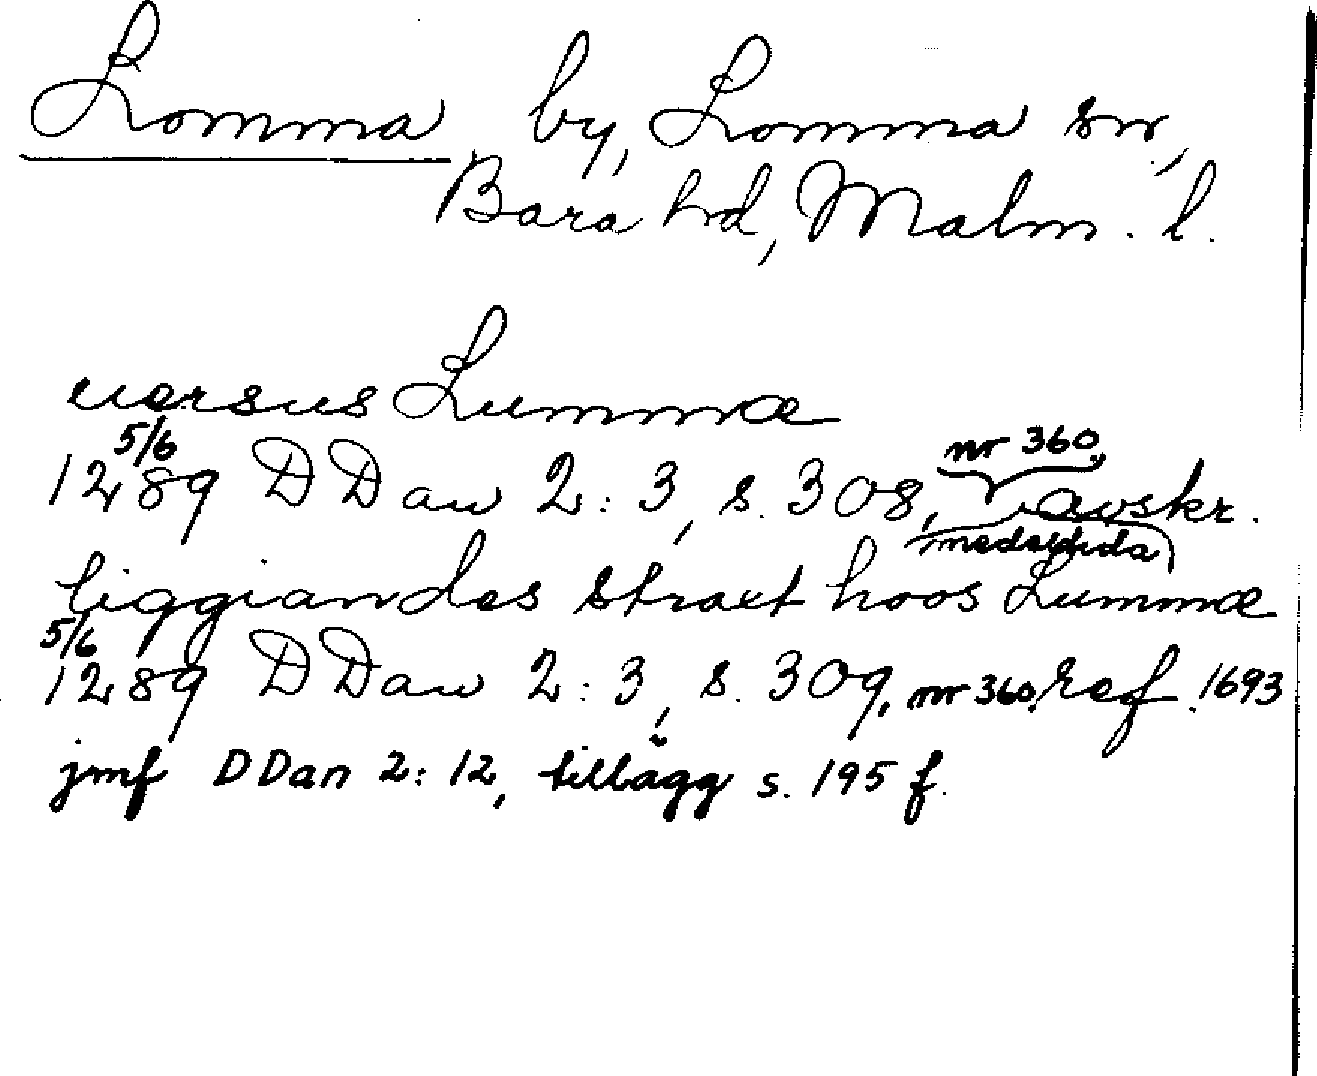 Lomma by, Lomma sn,
Bara hd, Malm. l.
versus Lummæ
5/6 nr 360,
1289 DDan 2:3, s. 308, avskr.
medeltida
liggiandes straxt hoos Lummæ
5/6
1289 DDan 2:3, s. 309, nr 360, ref. 1693
jmf DDan 2:12, tillägg s. 195 f.